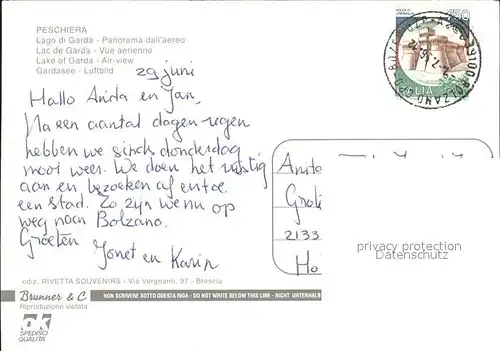 PESCHIERA
Lago di Garda - Panorama dall'aereo
Lac de Garda - Vue aerienne
Lake of Garda - Air-view
Gardasee - Luftbild
29 juni
Hallo Anita en Jan,
Na een aantal dagen regen
hebben we sinds donderdag
mooi weer. We doen het rustig
aan en bezoeken af en toe
een stad. Zo zijn we nu op
weg naar Bolzano.
Groeten
Jonet en Karin
ediz. RIVETTA SOUVENIRS - Via Vergnano, 97 - Brescia
Brunner & C
NON SCRIVERE SOTTO QUESTA RIGA - DO NOT WRITE BELOW THIS LINE - NICHT UNTERHALB
Riproduzione vietata
ok
SPEDISCI
QUALITÀ
750
39100 BOLZANO
Anita
2133
Ho
privacy protection
Datenschutz